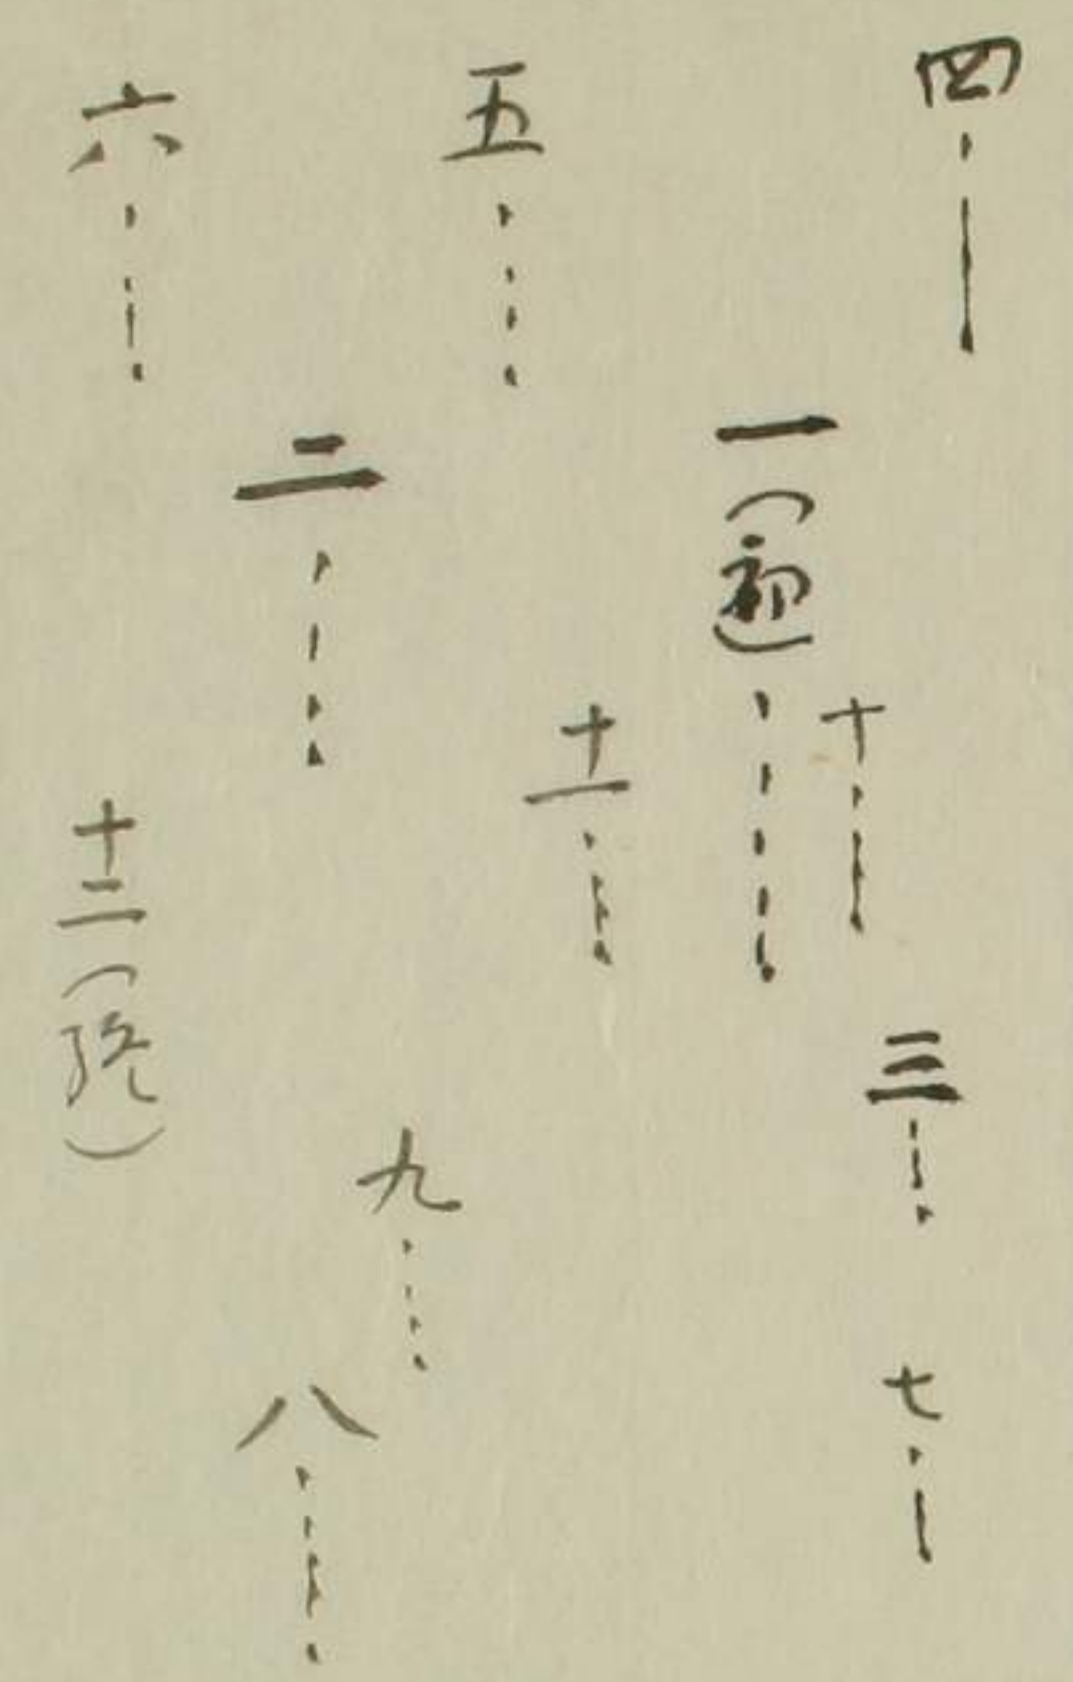 四
十
三
七
一（初）
十一
五
九
二
八
六
十二（終）